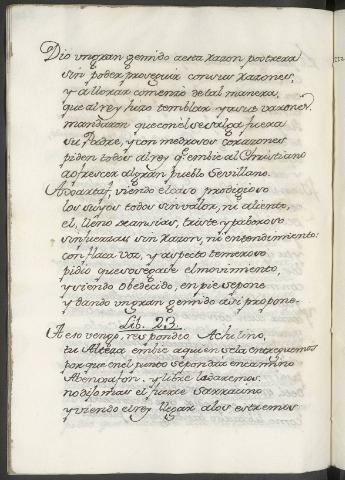 Dio un gran gemido a esta razon postrera
sin poder proseguir con sus razones,
y a llorar comenzó de tal manera,
que al rey hizo temblar, y a sus varones
mandaron que con el se salga fuera
su Padre, y con medrosos corazones
piden todos al rey q.e embie al Christiano
a ofrecer al gran pueblo Sevillano.
viendo el caso prodigioso
los suyos todos sin valor, ni aliento,
el, lleno de ansias, triste y pavoroso
sin fuerzas sin razon, ni entendimiento:
con flaca voz, y aspecto temeroso
pidio que sosegase el movimiento,
y viendo obedecido, en pie se pone
y dando un gran gemido asi propone.
Lib. 23.
A eso vengo, respondio Achitino,
tu Alteza embie a quien se la entreguemos
por que en el punto se pondrá en camino
y libre la daremos.
no dijo mas el fuerte Sarracino
y viendo el rey llegar a los estremos